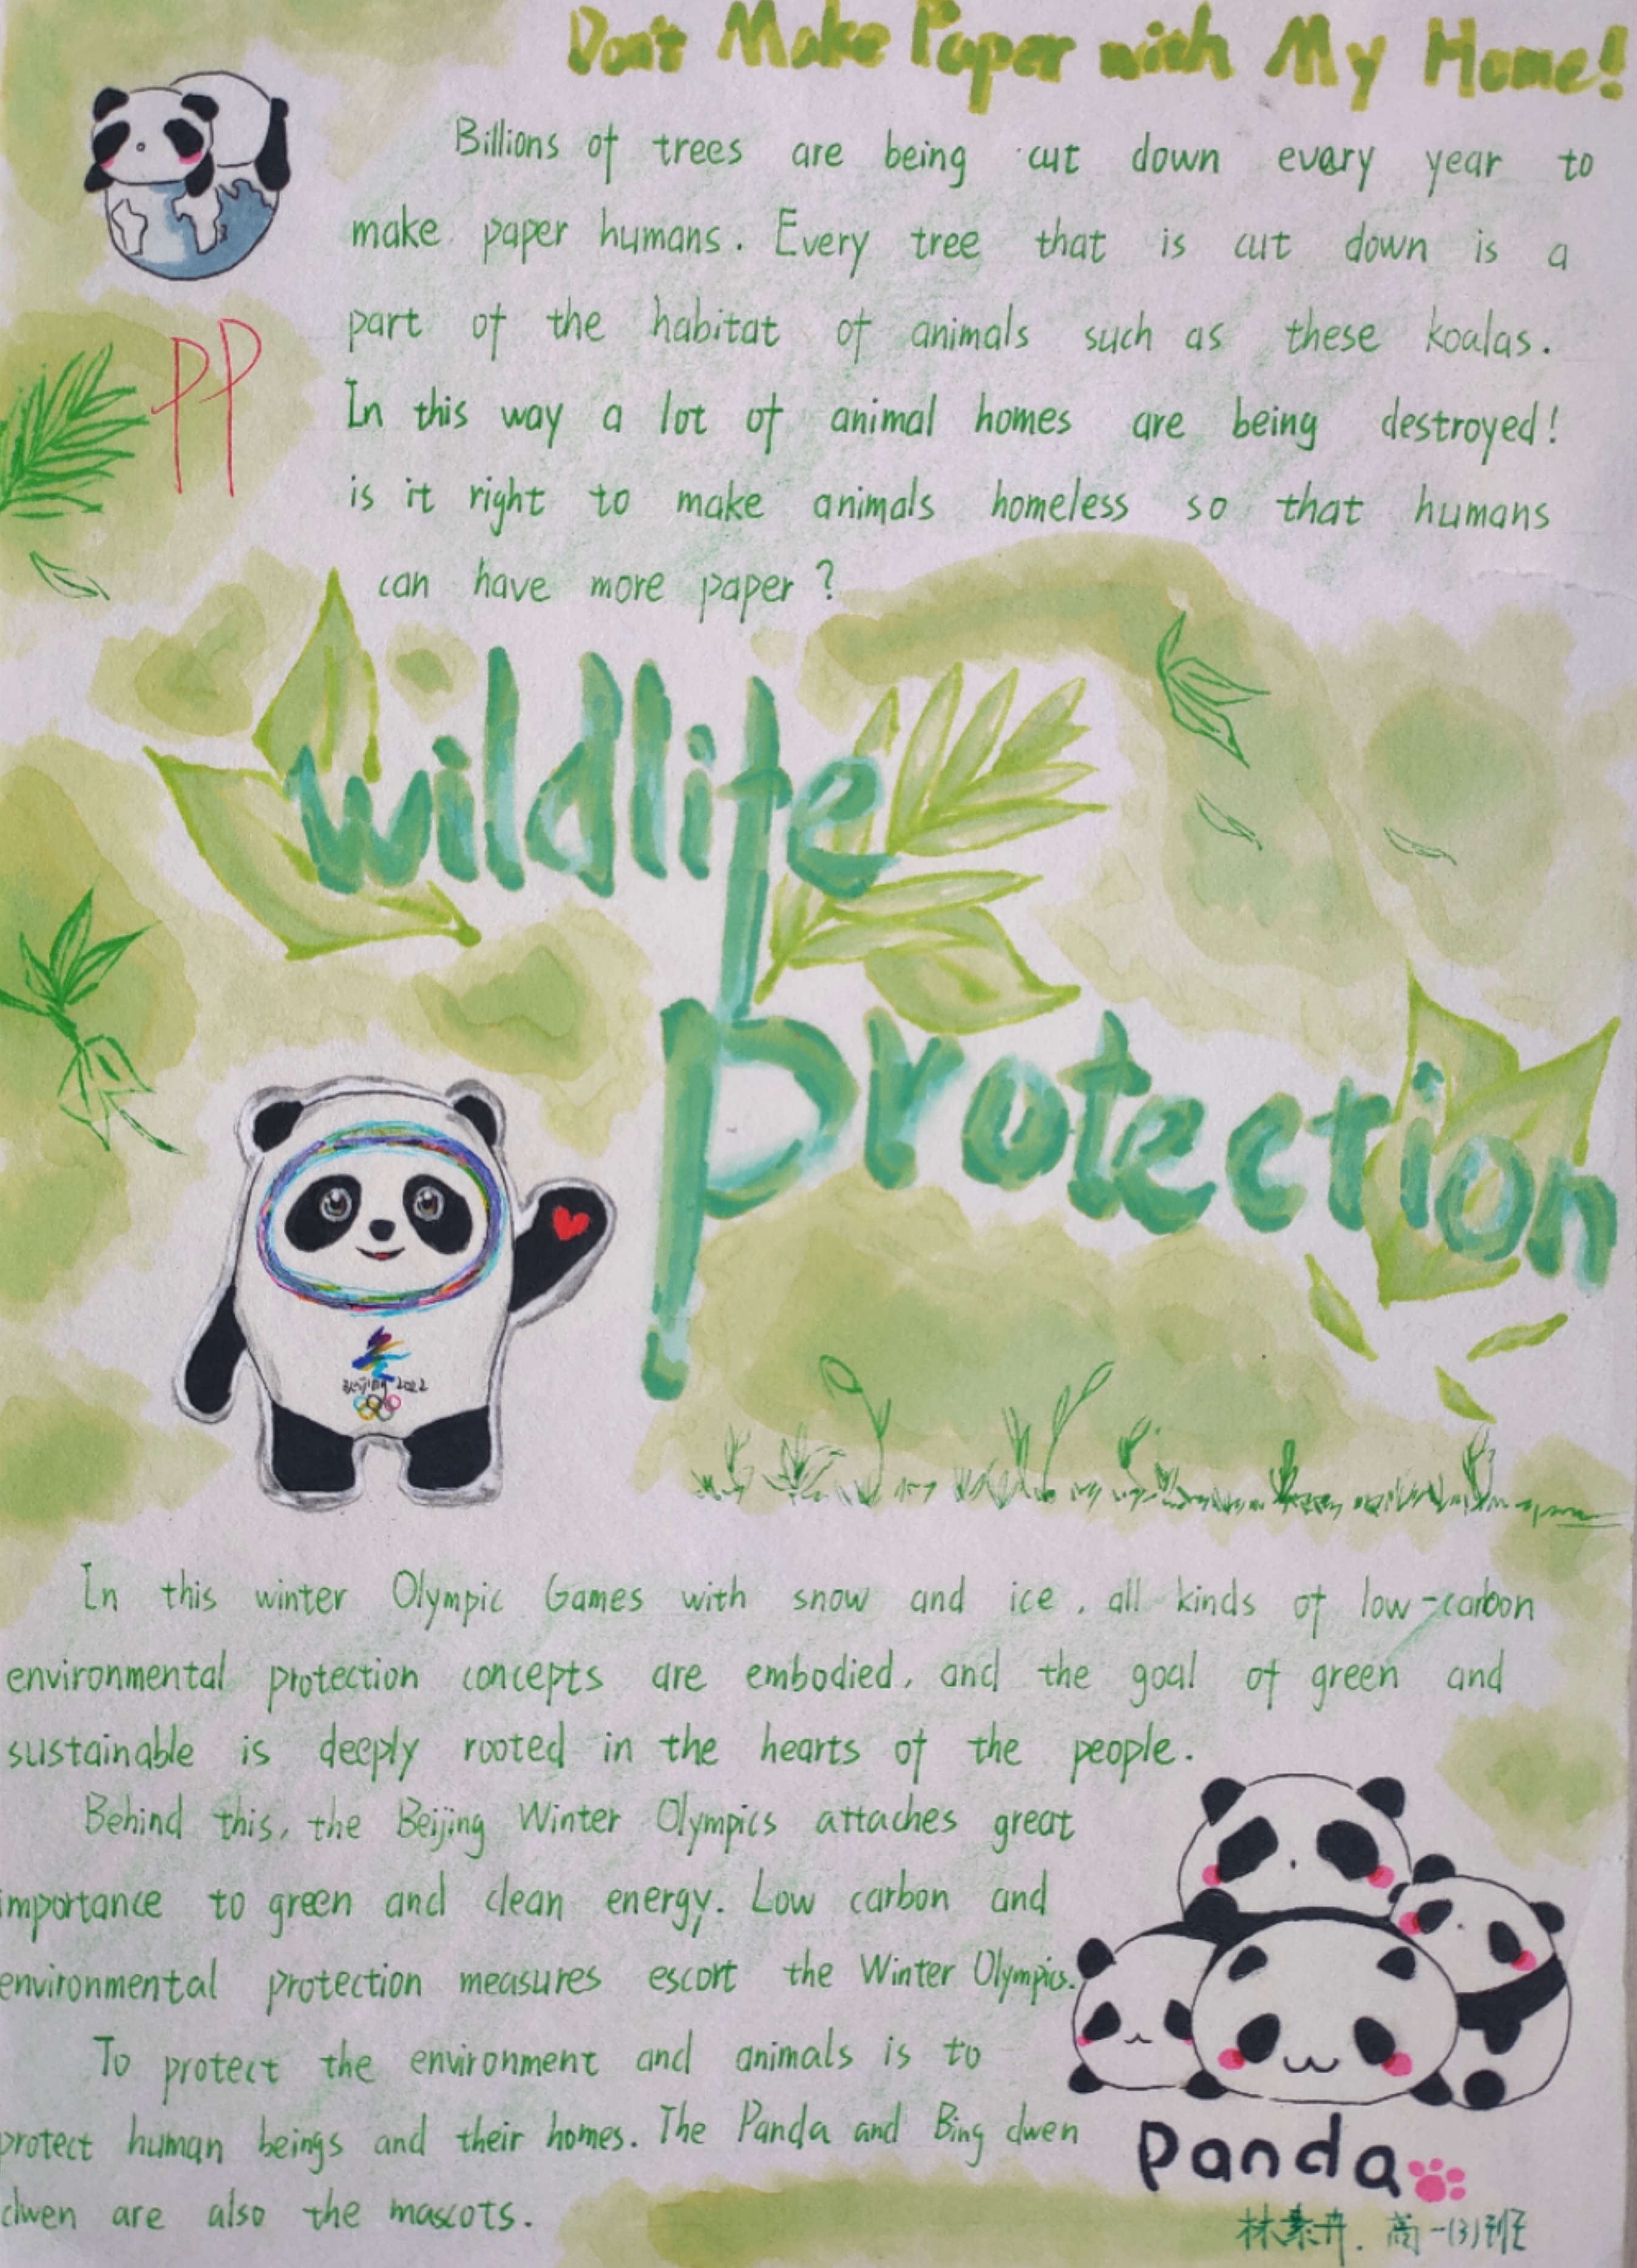 Don't Make Paper with My Home!
Billions of trees are being cut down evary year to
make paper humans. Every tree that is cut down is a
part of the habitat of animals such as these koalas.
In this way a lot of animal homes are being destroyed!
is it right to make animals homeless so that humans
can have more paper?
PP
wildlife
protection
Beijing 2022
In this winter Olympic Games with snow and ice, all kinds of low-carbon
environmental protection concepts are embodied, and the goal of green and
sustainable is deeply rooted in the hearts of the people.
Behind this, the Beijing Winter Olympics attaches great
importance to green and clean energy. Low carbon and
environmental protection measures escort the Winter Olympics.
To protect the environment and animals is to
protect human beings and their homes. The Panda and Bing dwen
dwen are also the mascots.
Panda
林素卉. 高一(3)班